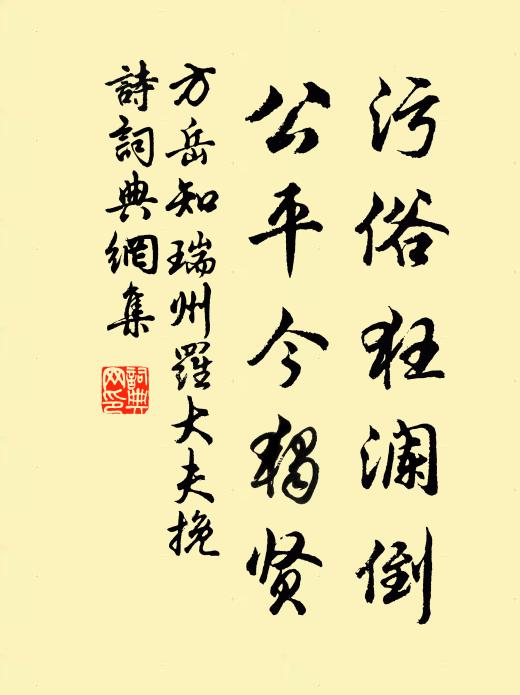 污俗狂澜倒
公平今独贤
方岳知瑞州羅大夫挽
詩詞典網集
詞典
网印